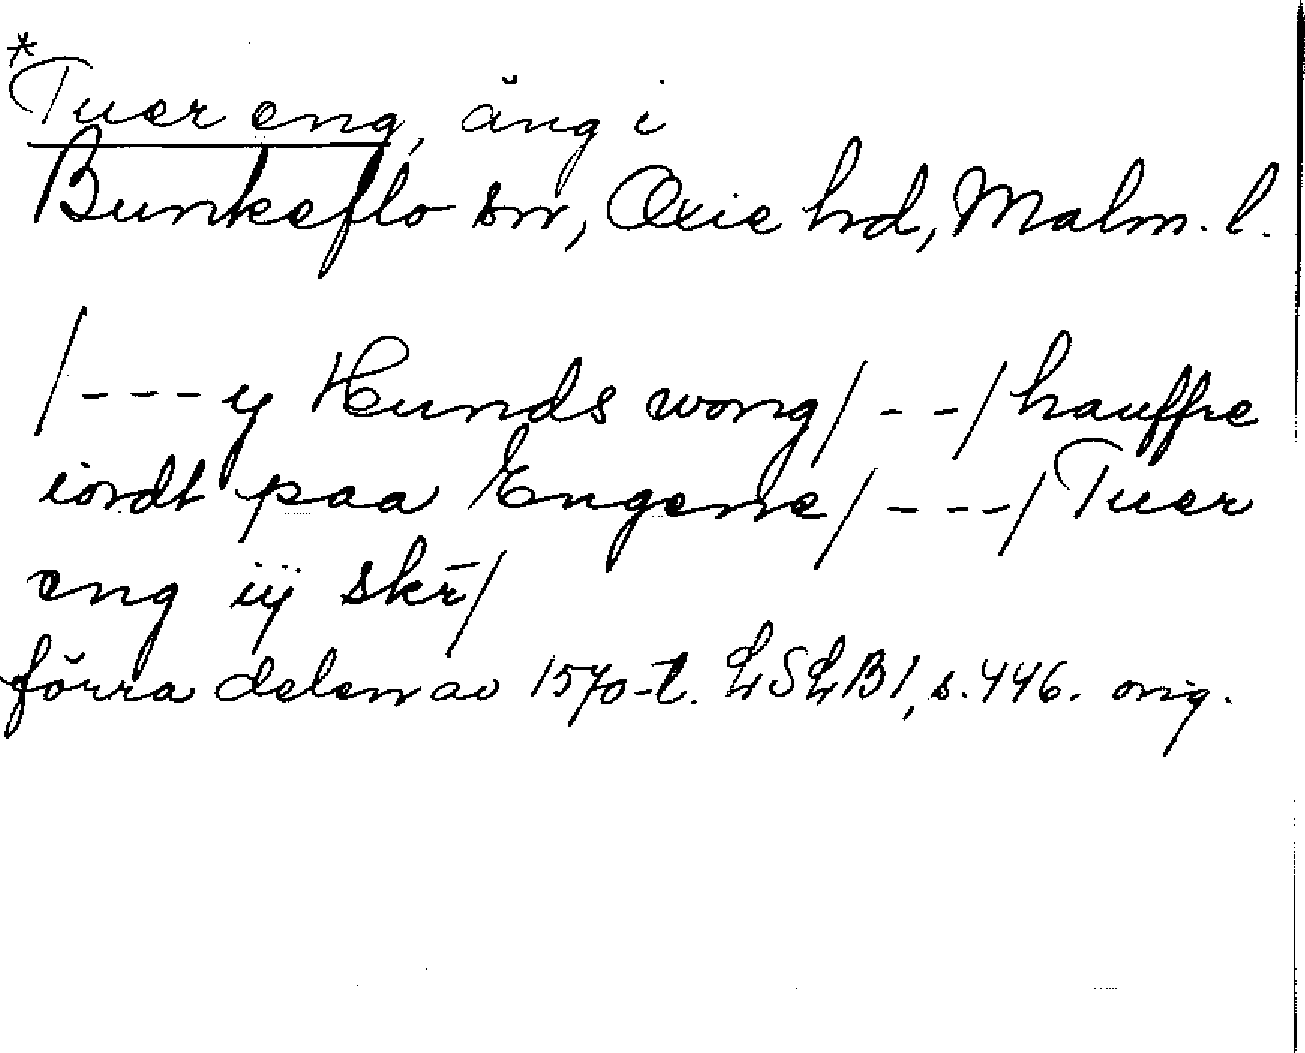 *Tuer eng, äng i
Bunkeflo sn, Oxie hd, Malm. l.
/---y Hunds wong/--/hauffue
iordt paa Engene/---/Tuer
eng iÿ skr̄/
förra delen av 1570-t. LSLB1, s.446. orig.